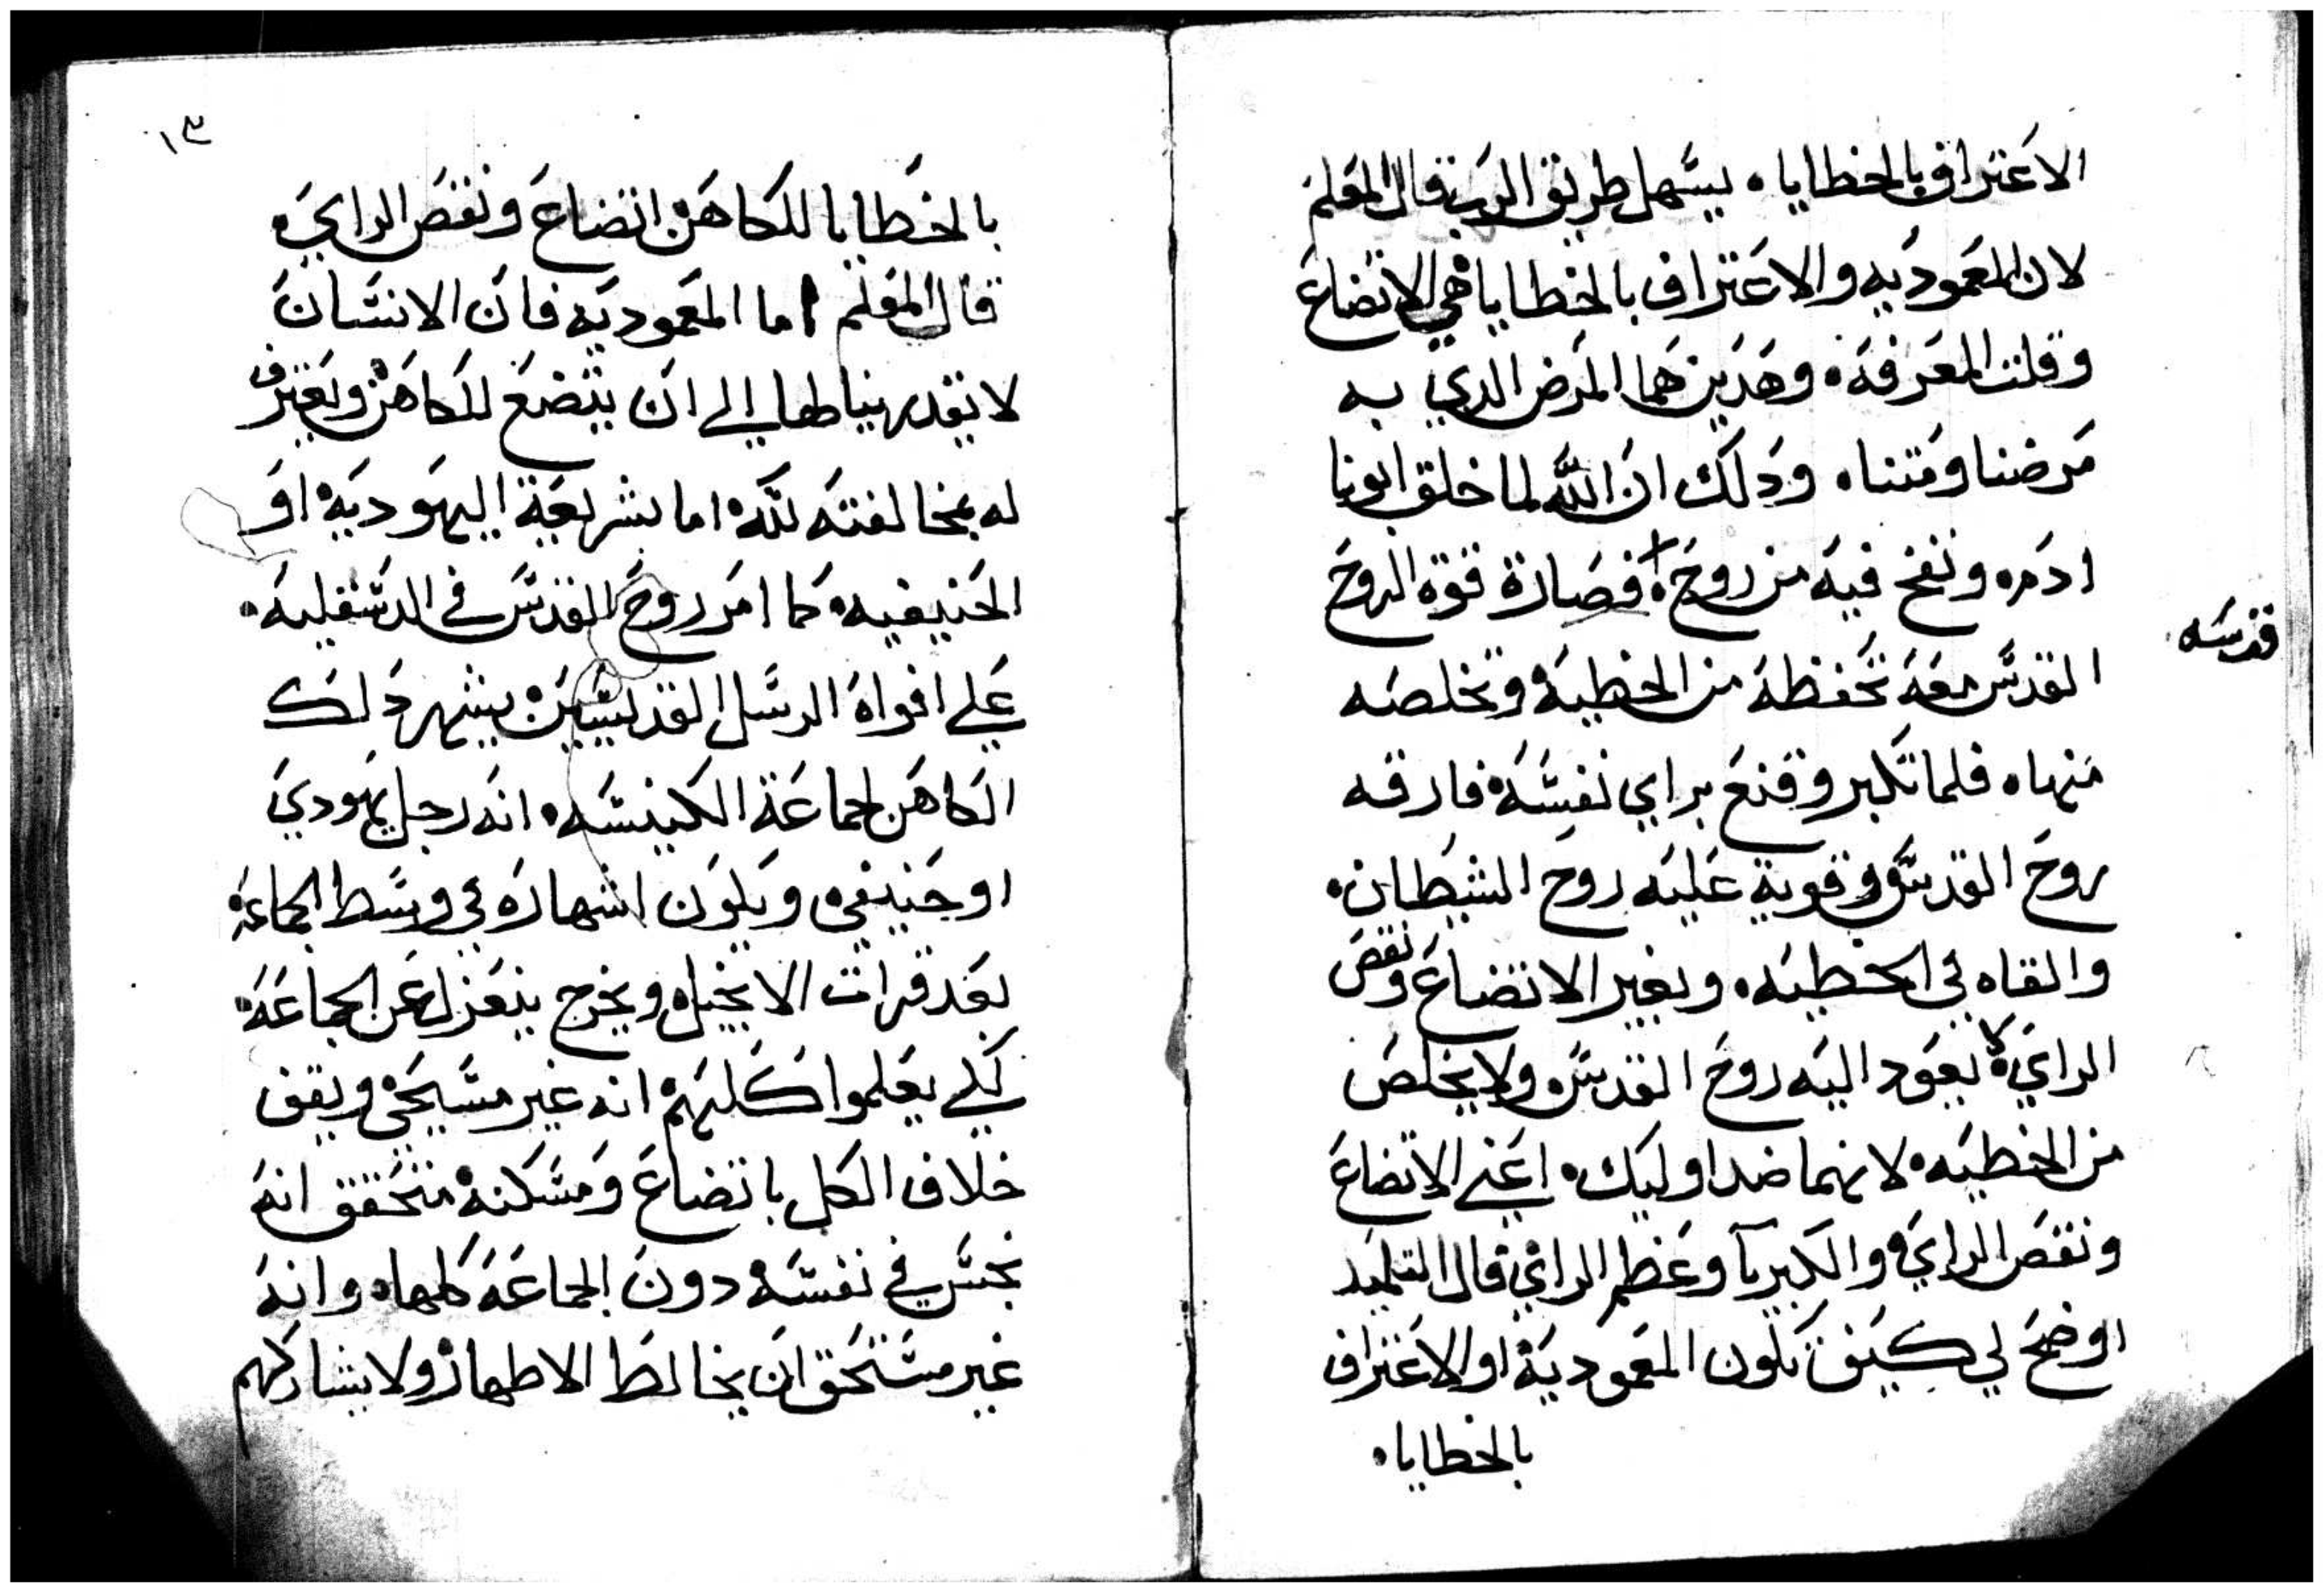 الاعتراف بالخطايا. يسهل طريق الرب قال المعلم
لان المعموديه والاعتراف بالخطايا هي الاتضاع
وقلت المعرفه. وهدين هما المرض الدي به
مرضنا ومتنا. ودلك ان الله لما خلق ابونا
ادم. ونفخ فيه من روح قدسه. فصارة قوة الروح
القدس معه تحفظه من الخطيه وتخلصه
منها. فلما تكبر وقنع براي نفسه فارقه
روح القدس وقوية عليه روح الشيطان.
والقاه في الخطيه. وبغير الاتضاع ونقص
الراي. لا يعود اليه روح القدس. ولا يخلص
من الخطيه. لانهما ضد اوليك. اعني الاتضاع
ونقص الراي والكبريآ وعظم الراي. قال التلميد
اوضح لي كيف تكون المعموديه او الاعتراف
بالخطايا.
١٣
بالخطايا للكاهن اتضاع ونقص الراي.
قال المعلم اما المعموديه فان الانسان
لا يقدر ينالها الي ان يتضع للكاهن ويعترف
له بمخالفته لله. اما بشريعة اليهوديه او
الحنيفيه. كما امر روح القدس في الدسقليه.
علي افواه الرسل القديسين يشهر دلك
الكاهن لجماعة الكنيسه. انه رجل يهودي
او حنيفي. ويكون اشهاره في وسط الجماعه
بعد قرات الانجيل. ويخرج ينعزل عن الجماعه.
لكي يعلموا كلهم انه غير مسيحي ويقف
خلاف الكل باتضاع ومسكنه. متحقق انه
نجس في نفسه دون الجماعه كلها. وانه
غير مستحق ان يخالط الاطهار ولا يشاركهم